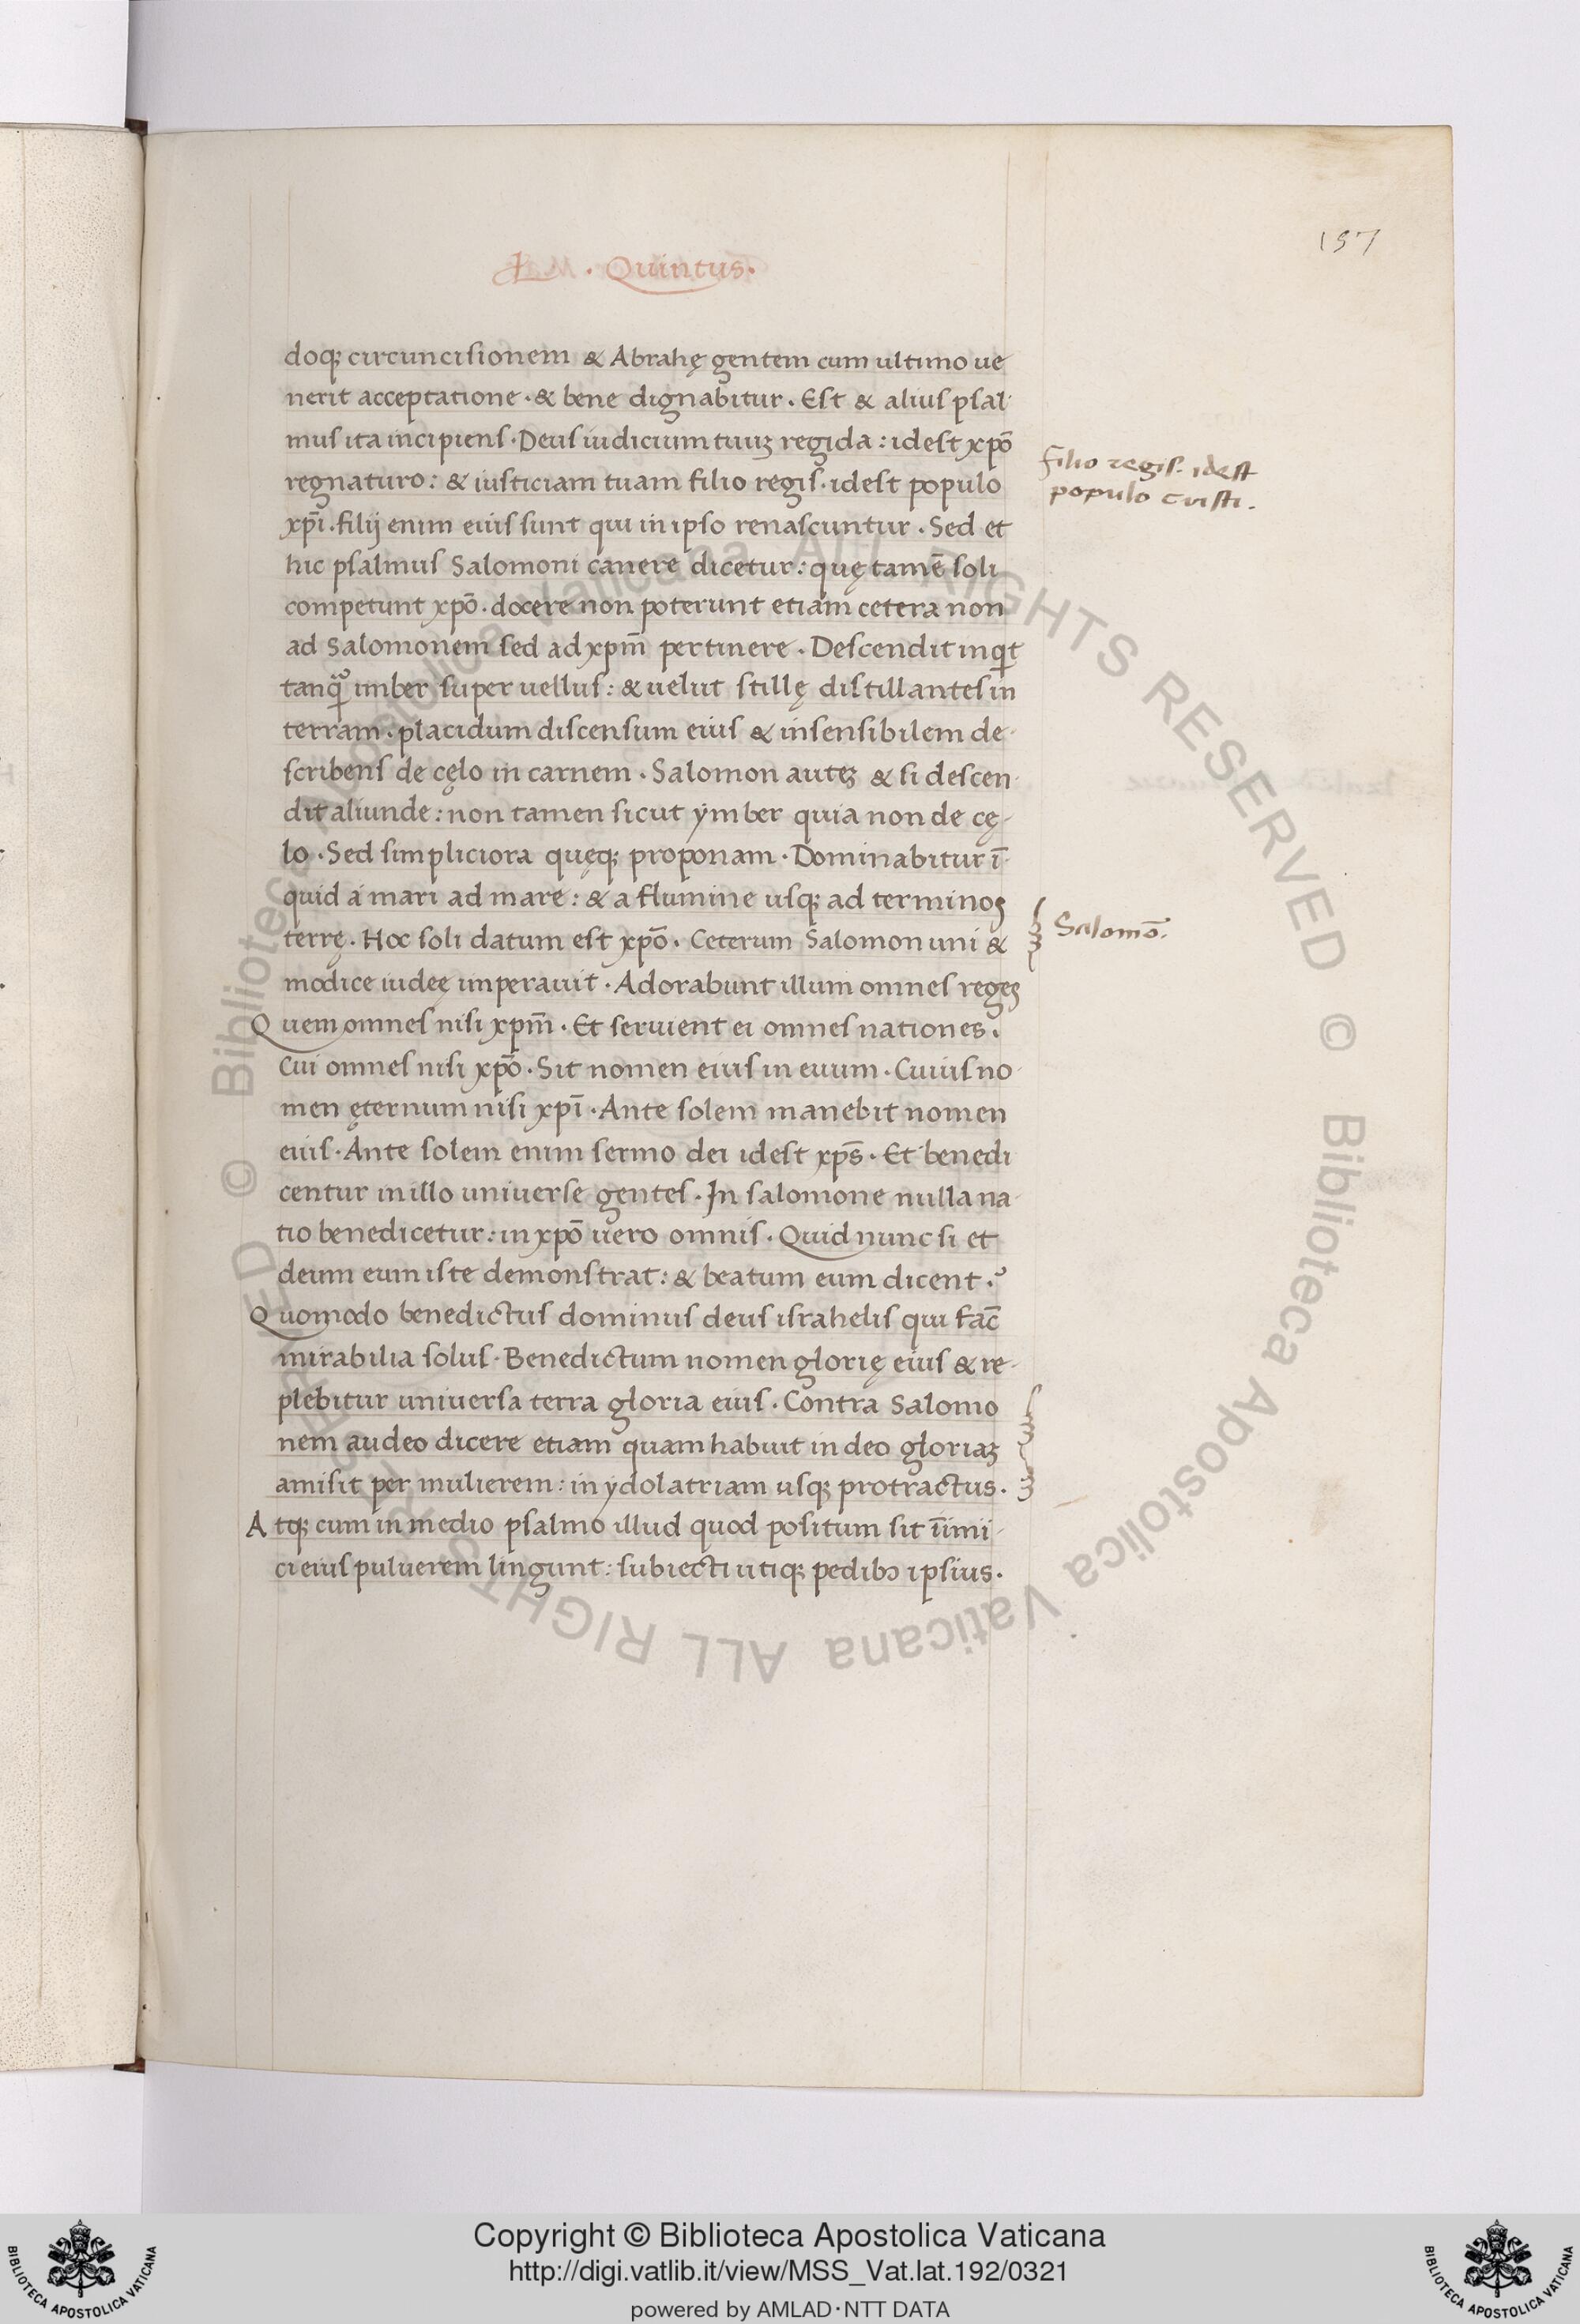 157
L . Quintus.
doqꝫ circuncisionem & Abrahę gentem cum ultimo ue
nerit acceptatione · & bene dignabitur . Est & alius psal-
mus ita incipiens · Deus iudicium tuuꝫ regi da : idest xpō
regnaturo : & iusticiam tuam filio regis · idest populo
xpī . filij enim eius sunt qui in ipso renascuntur . Sed et
hic psalmus Salomoni canere dicetur : quę tamē soli
competunt xpō . docere non poterunt etiam cetera non
ad Salomonem sed ad xpm̄ pertinere . Descendit inqͥt
tanqͣꝫ imber super uellus : & uelut stillę distillantes in
terram . placidum discensum eius & insensibilem de-
scribens de cęlo in carnem . Salomon auteꝫ & si descen-
dit aliunde : non tamen sicut ymber quia non de cę-
lo . Sed simpliciora quęqꝫ proponam . Dominabitur ī-
quid a mari ad mare : & a flumine usqꝫ ad terminos
terrę . Hoc soli datum est xpō . Ceterum Salomon uni &
modice iudeę imperauit . Adorabunt illum omnes reges
Quem omnes nisi xpm̄ . Et seruient ei omnes nationes .
Cui omnes nisi xpō . Sit nomen eius in euum . Cuius no-
men ęternum nisi xpī . Ante solem manebit nomen
eius . Ante solem enim sermo dei idest xps̄ . Et benedi
centur in illo uniuerse gentes . In salomone nulla na-
tio benedicetur : in xpō uero omnis . Quid nunc si et
deum eum iste demonstrat : & beatum eum dicent .?
Quomodo benedictus dominus deus israhelis qui fac̄
mirabilia solus . Benedictum nomen glorię eius & re-
plebitur uniuersa terra gloria eius . Contra Salomo
nem audeo dicere etiam quam habuit in deo gloriaꝫ
amisit per mulierem : in ydolatriam usqꝫ protractus .
Atqꝫ cum in medio psalmo illud quod positum sit iīmi-
ci eius puluerem lingunt : subiecti utiqꝫ pedibꝰ ipsius .
filio regis. idest
populo cristi .
Salomō.
© Biblioteca Apostolica Vaticana ALL RIGHTS RESERVED © Biblioteca Apostolica Vaticana ALL RIGHTS RESERVED
Copyright © Biblioteca Apostolica Vaticana
http://digi.vatlib.it/view/MSS_Vat.lat.192/0321
powered by AMLAD·NTT DATA
BIBLIOTECA APOSTOLICA VATICANA
BIBLIOTECA APOSTOLICA VATICANA